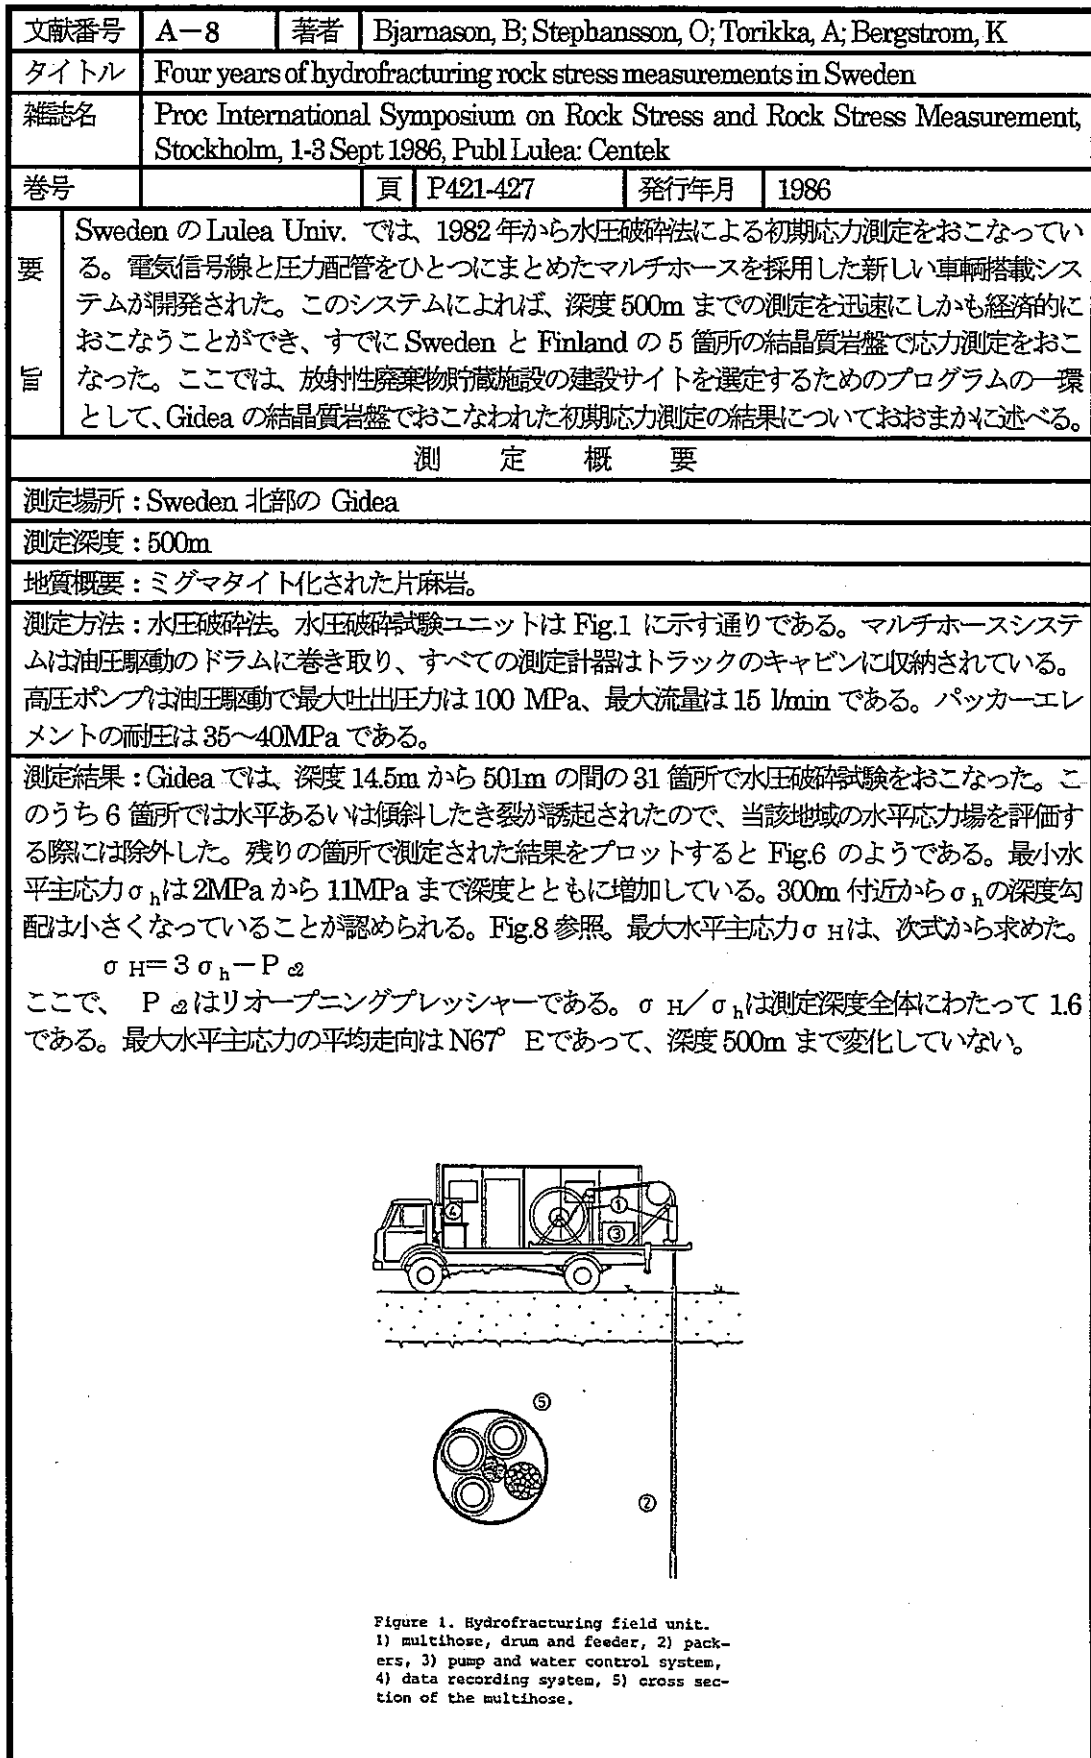 文献番号 A−8 著者 Bjarnason, B; Stephansson, O; Torikka, A; Bergstrom, K
タイトル Four years of hydrofracturing rock stress measurements in Sweden
雑誌名 Proc International Symposium on Rock Stress and Rock Stress Measurement,
Stockholm, 1-3 Sept 1986, Publ Lulea: Centek
巻号 頁 P421-427 発行年月 1986
要旨
Sweden の Lulea Univ. では、1982 年から水圧破砕法による初期応力測定をおこなってい
る。電気信号線と圧力配管をひとつにまとめたマルチホースを採用した新しい車輌搭載シス
テムが開発された。このシステムによれば、深度 500m までの測定を迅速にしかも経済的に
おこなうことができ、すでに Sweden と Finland の 5 箇所の結晶質岩盤で応力測定をおこ
なった。ここでは、放射性廃棄物貯蔵施設の建設サイトを選定するためのプログラムの一環
として、Gidea の結晶質岩盤でおこなわれた初期応力測定の結果についておおまかに述べる。
測 定 概 要
測定場所：Sweden 北部の Gidea
測定深度：500m
地質概要：ミグマタイト化された片麻岩。
測定方法：水圧破砕法。水圧破砕試験ユニットは Fig.1 に示す通りである。マルチホースシステ
ムは油圧駆動のドラムに巻き取り、すべての測定計器はトラックのキャビンに収納されている。
高圧ポンプは油圧駆動で最大吐出圧力は 100 MPa、最大流量は 15 l/min である。パッカーエレ
メントの耐圧は 35〜40MPa である。
測定結果：Gidea では、深度 14.5m から 501m の間の 31 箇所で水圧破砕試験をおこなった。こ
のうち 6 箇所では水平あるいは傾斜したき裂が誘起されたので、当該地域の水平応力場を評価す
る際には除外した。残りの箇所で測定された結果をプロットすると Fig.6 のようである。最小水
平主応力σhは 2MPa から 11MPa まで深度とともに増加している。300m 付近からσhの深度勾
配は小さくなっていることが認められる。Fig.8 参照。最大水平主応力σHは、次式から求めた。
σH＝3σh−Pc2
ここで、 Pc2はリオープニングプレッシャーである。σH／σhは測定深度全体にわたって 1.6
である。最大水平主応力の平均走向は N67° Eであって、深度 500m まで変化していない。
①
④
③
⑤
②
Figure 1. Hydrofracturing field unit.
1) multihose, drum and feeder, 2) pack-
ers, 3) pump and water control system,
4) data recording system, 5) cross sec-
tion of the multihose.